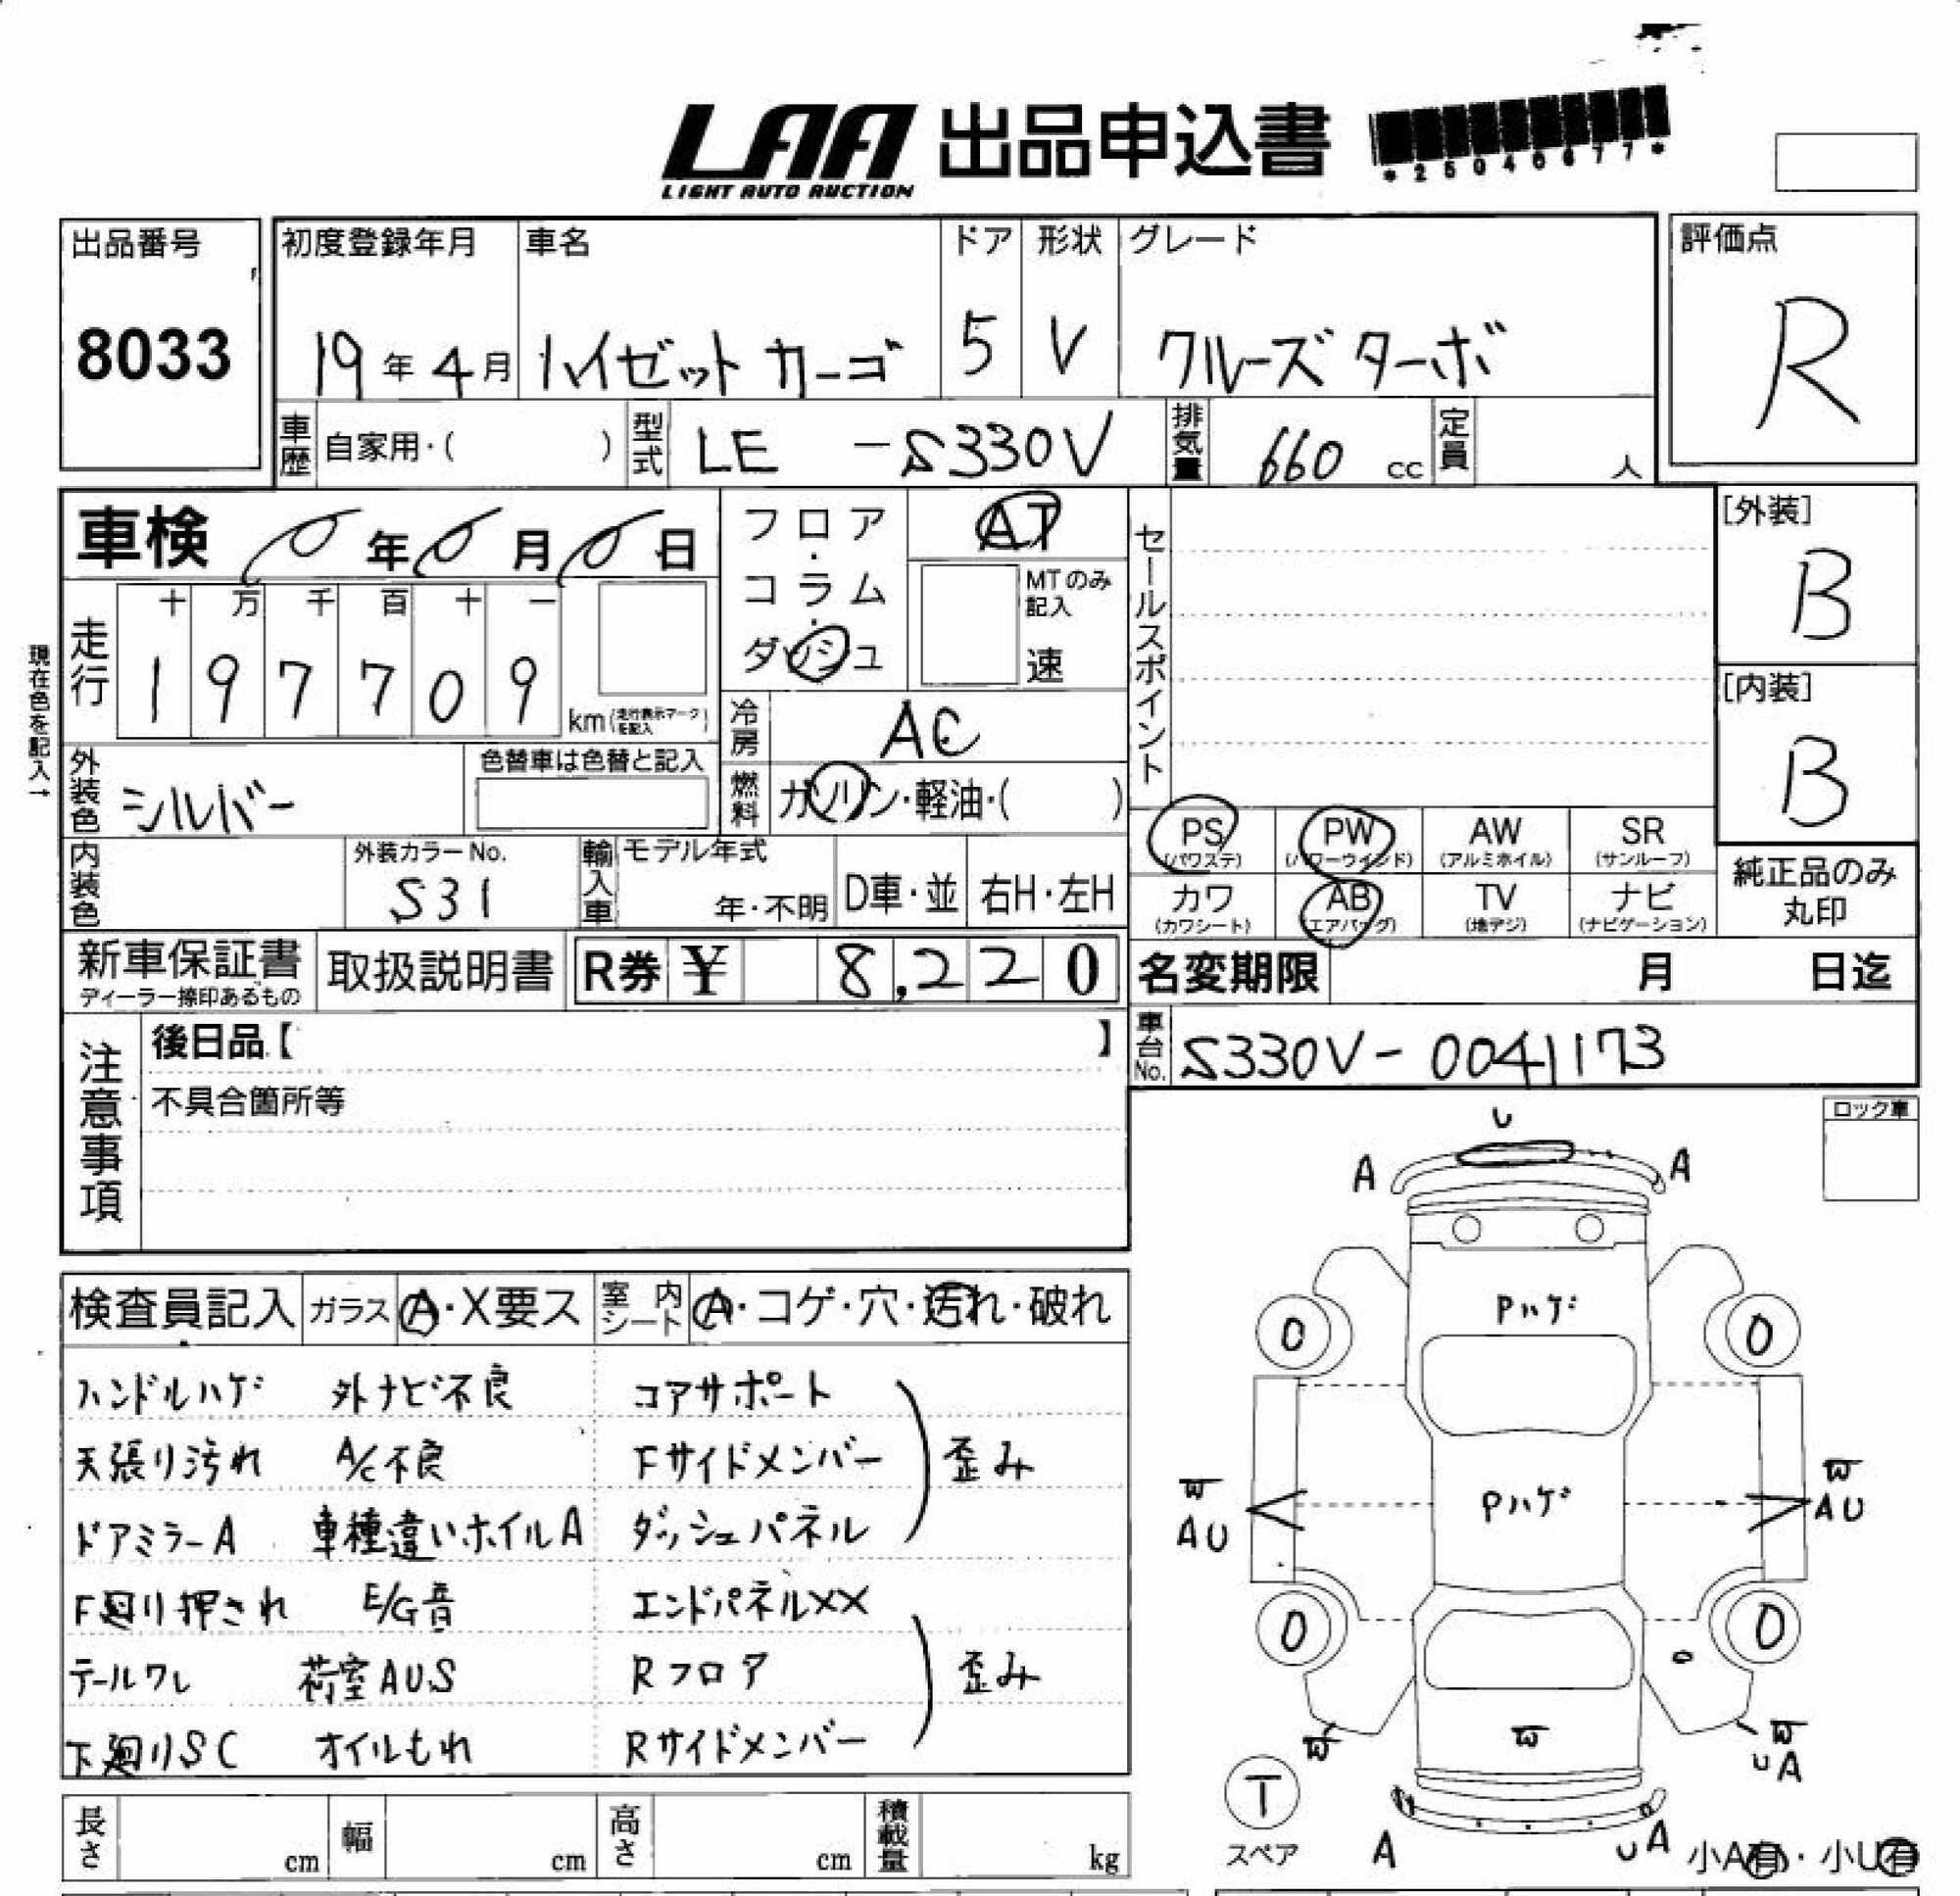 LAA 出品申込書
LIGHT AUTO AUCTION
出品番号
8033
初度登録年月
19年4月
車名
ハイゼット カーゴ
ドア
5
形状
V
グレード
クルーズ ターボ
評価点
R
車歴 自家用・( )
型式 LE -S330V
排気量 660 cc
定員 人
車検 年 月 日
フロア・コラム・ダッシュ
AT
MTのみ記入
速
走行
十 万 千 百 十 一
1 9 7 7 0 9
km(走行表示マークを記入)
現在色を記入→
冷房 AC
燃料 ガソリン・軽油・( )
外装色 シルバー
色替車は色替と記入
内装色
外装カラーNo.
S31
輸入車
モデル年式
年・不明
D車・並
右H・左H
セールスポイント
[外装]
B
[内装]
B
PS (パワステ)
PW (パワーウインド)
AW (アルミホイル)
SR (サンルーフ)
カワ (カワシート)
AB (エアバッグ)
TV (地デジ)
ナビ (ナビゲーション)
純正品のみ
丸印
新車保証書
ディーラー捺印あるもの
取扱説明書
R券 ¥ 8,220
名変期限 月 日迄
車台No. S330V-0041173
注意事項
後日品【 】
不具合箇所等
ロック車
検査員記入 ガラス A・X要ス 室内シート A・コゲ・穴・汚れ・破れ
ハンドルハゲ 外ナビ不良 コアサポート
天張り汚れ A/C不良 Fサイドメンバー 歪み
ドアミラーA 車種違いホイルA ダッシュパネル
F廻り押され E/G音 エンドパネルXX
テールワレ 荷室AUS Rフロア 歪み
下廻りSC オイルもれ Rサイドメンバー
長さ cm 幅 cm 高さ cm 積載量 kg
U
A A
Pハゲ
0 0
Pハゲ
W W
AU AU
0 0
W W W
UA
T
スペア
A UA
小A有・小U有